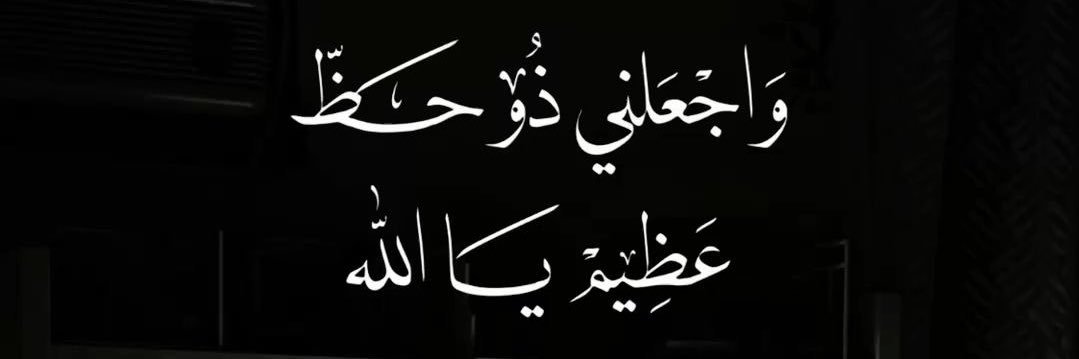 وَاجْعَلني ذُو حظّ
عَظِيمْ يا اللّٰه